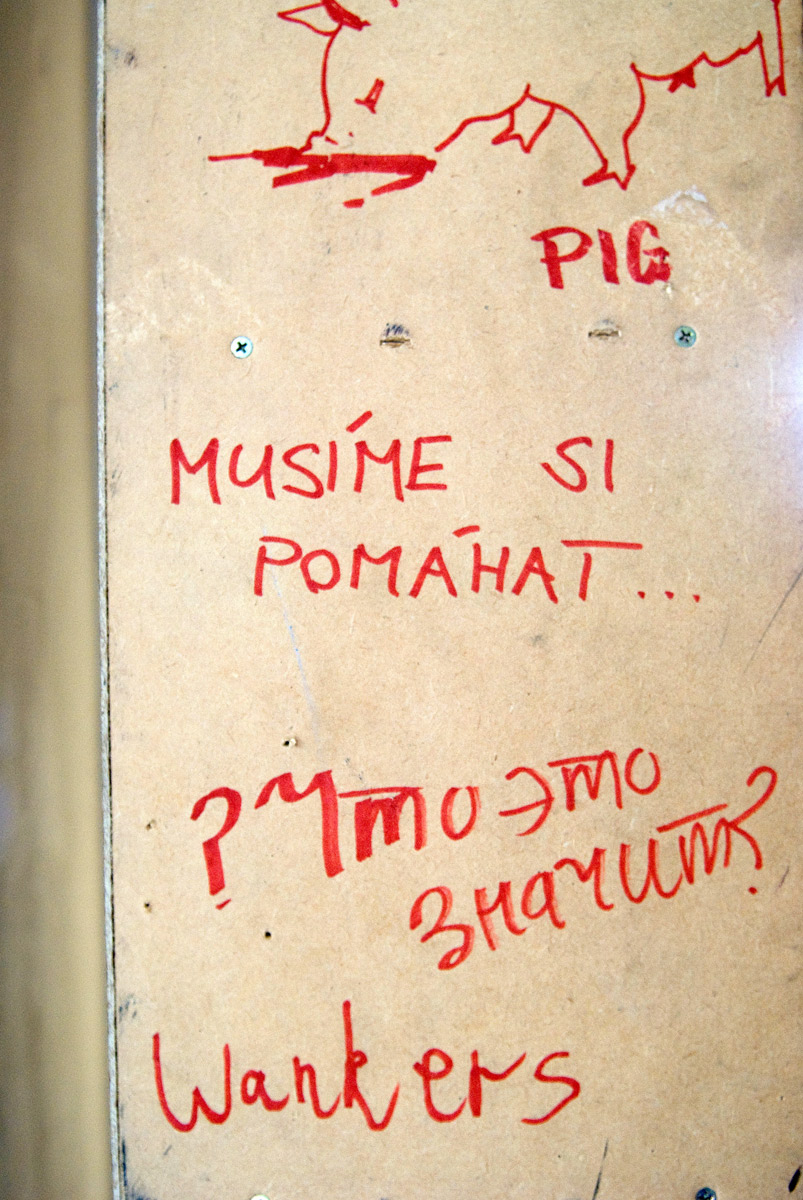 PIG
MUSÍME SI
POMÁHAT...
? Что это
значит?
Wankers